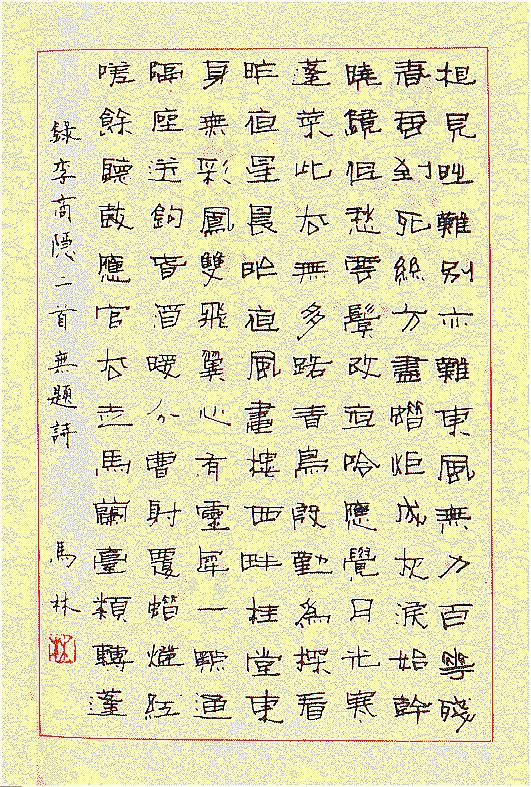 相見時難别亦難東風無力百華殘
春蚕到死絲方盡蜡炬成灰淚始幹
曉鏡但愁雲鬢改夜吟應覺月光寒
蓬萊此去無多路青鳥殷勤為探看
昨夜星晨昨夜風畫樓西畔桂堂東
身無彩鳳雙飛翼心有靈犀一點通
隔座送鈎春酒暖分曹射覆蜡燈紅
嗟餘聽鼓應官去走馬蘭臺類轉蓬
錄李商隱二首無題詩 馬林